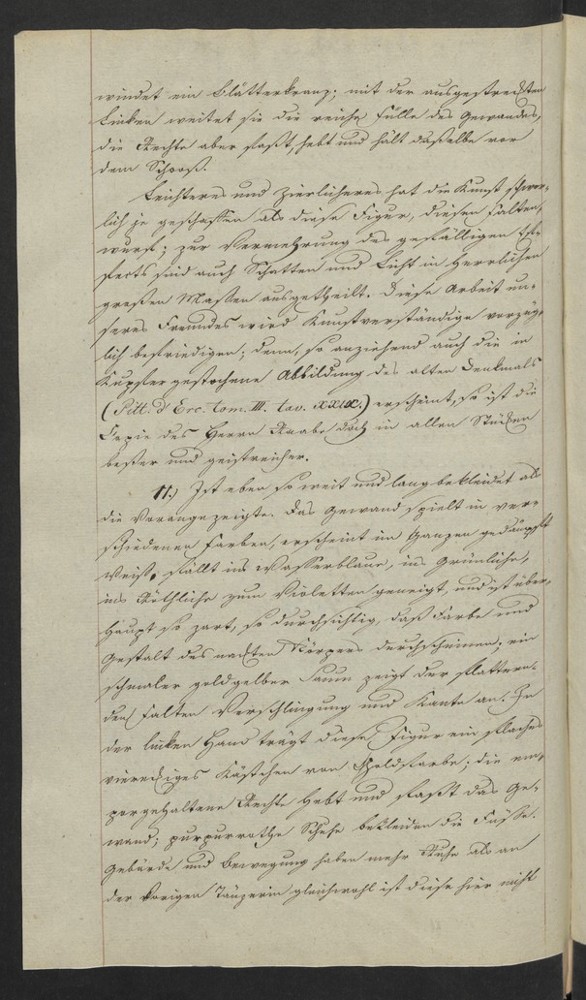 windet ein Blätterkranz; mit der ausgestreckten
Linken weitet sie die reiche Fülle des Gewandes,
die Rechte aber faßt, hebt und hält dasselbe vor
dem Schooß.
Leichteres und Zierlicheres hat die Kunst schwer-
lich je geschaffen als diese Figur, diesen Falten-
wurf; zur Vermehrung des gefälligen Ef-
fects sind auch Schatten und Licht in herrlichen
großen Massen ausgetheilt. Diese Arbeit un-
seres Freundes wird Kunstverständige vorzüg-
lich befriedigen; denn, so anziehend auch die in
Kupfer gestochene Abbildung des alten Denkmals
(Pitt. d'Erc. tom. III. tav. XXIX.) erscheint, so ist die
Copie des Herrn Raabe doch in allen Stücken
besser und geistreicher.
11.) Ist eben so weit und lang bekleidet als
die Vorangezeigte. Das Gewand spielt in ver-
schiedenen Farben, erscheint im Ganzen gedämpft
Weiß, fällt ins Wasserblaue, ins Grünliche,
ins Röthliche zum Violetten geneigt, und ist über-
haupt so zart, so durchsichtig, daß Farbe und
Gestalt des nackten Körpers durchscheinen; ein
schmaler goldgelber Saum zeigt der flattern-
den Falten Verschlingung und Kante an. In
der linken Hand trägt diese Figur ein flaches
viereckiges Kästchen von Goldfarbe; die em-
porgehaltene Rechte hebt und faßt das Ge-
wand; purpurrothe Schuhe bekleiden die Füße.
Gebärde und Bewegung haben mehr Ruhe als an
der vorigen Tänzerin gleichwohl ist diese hier nicht